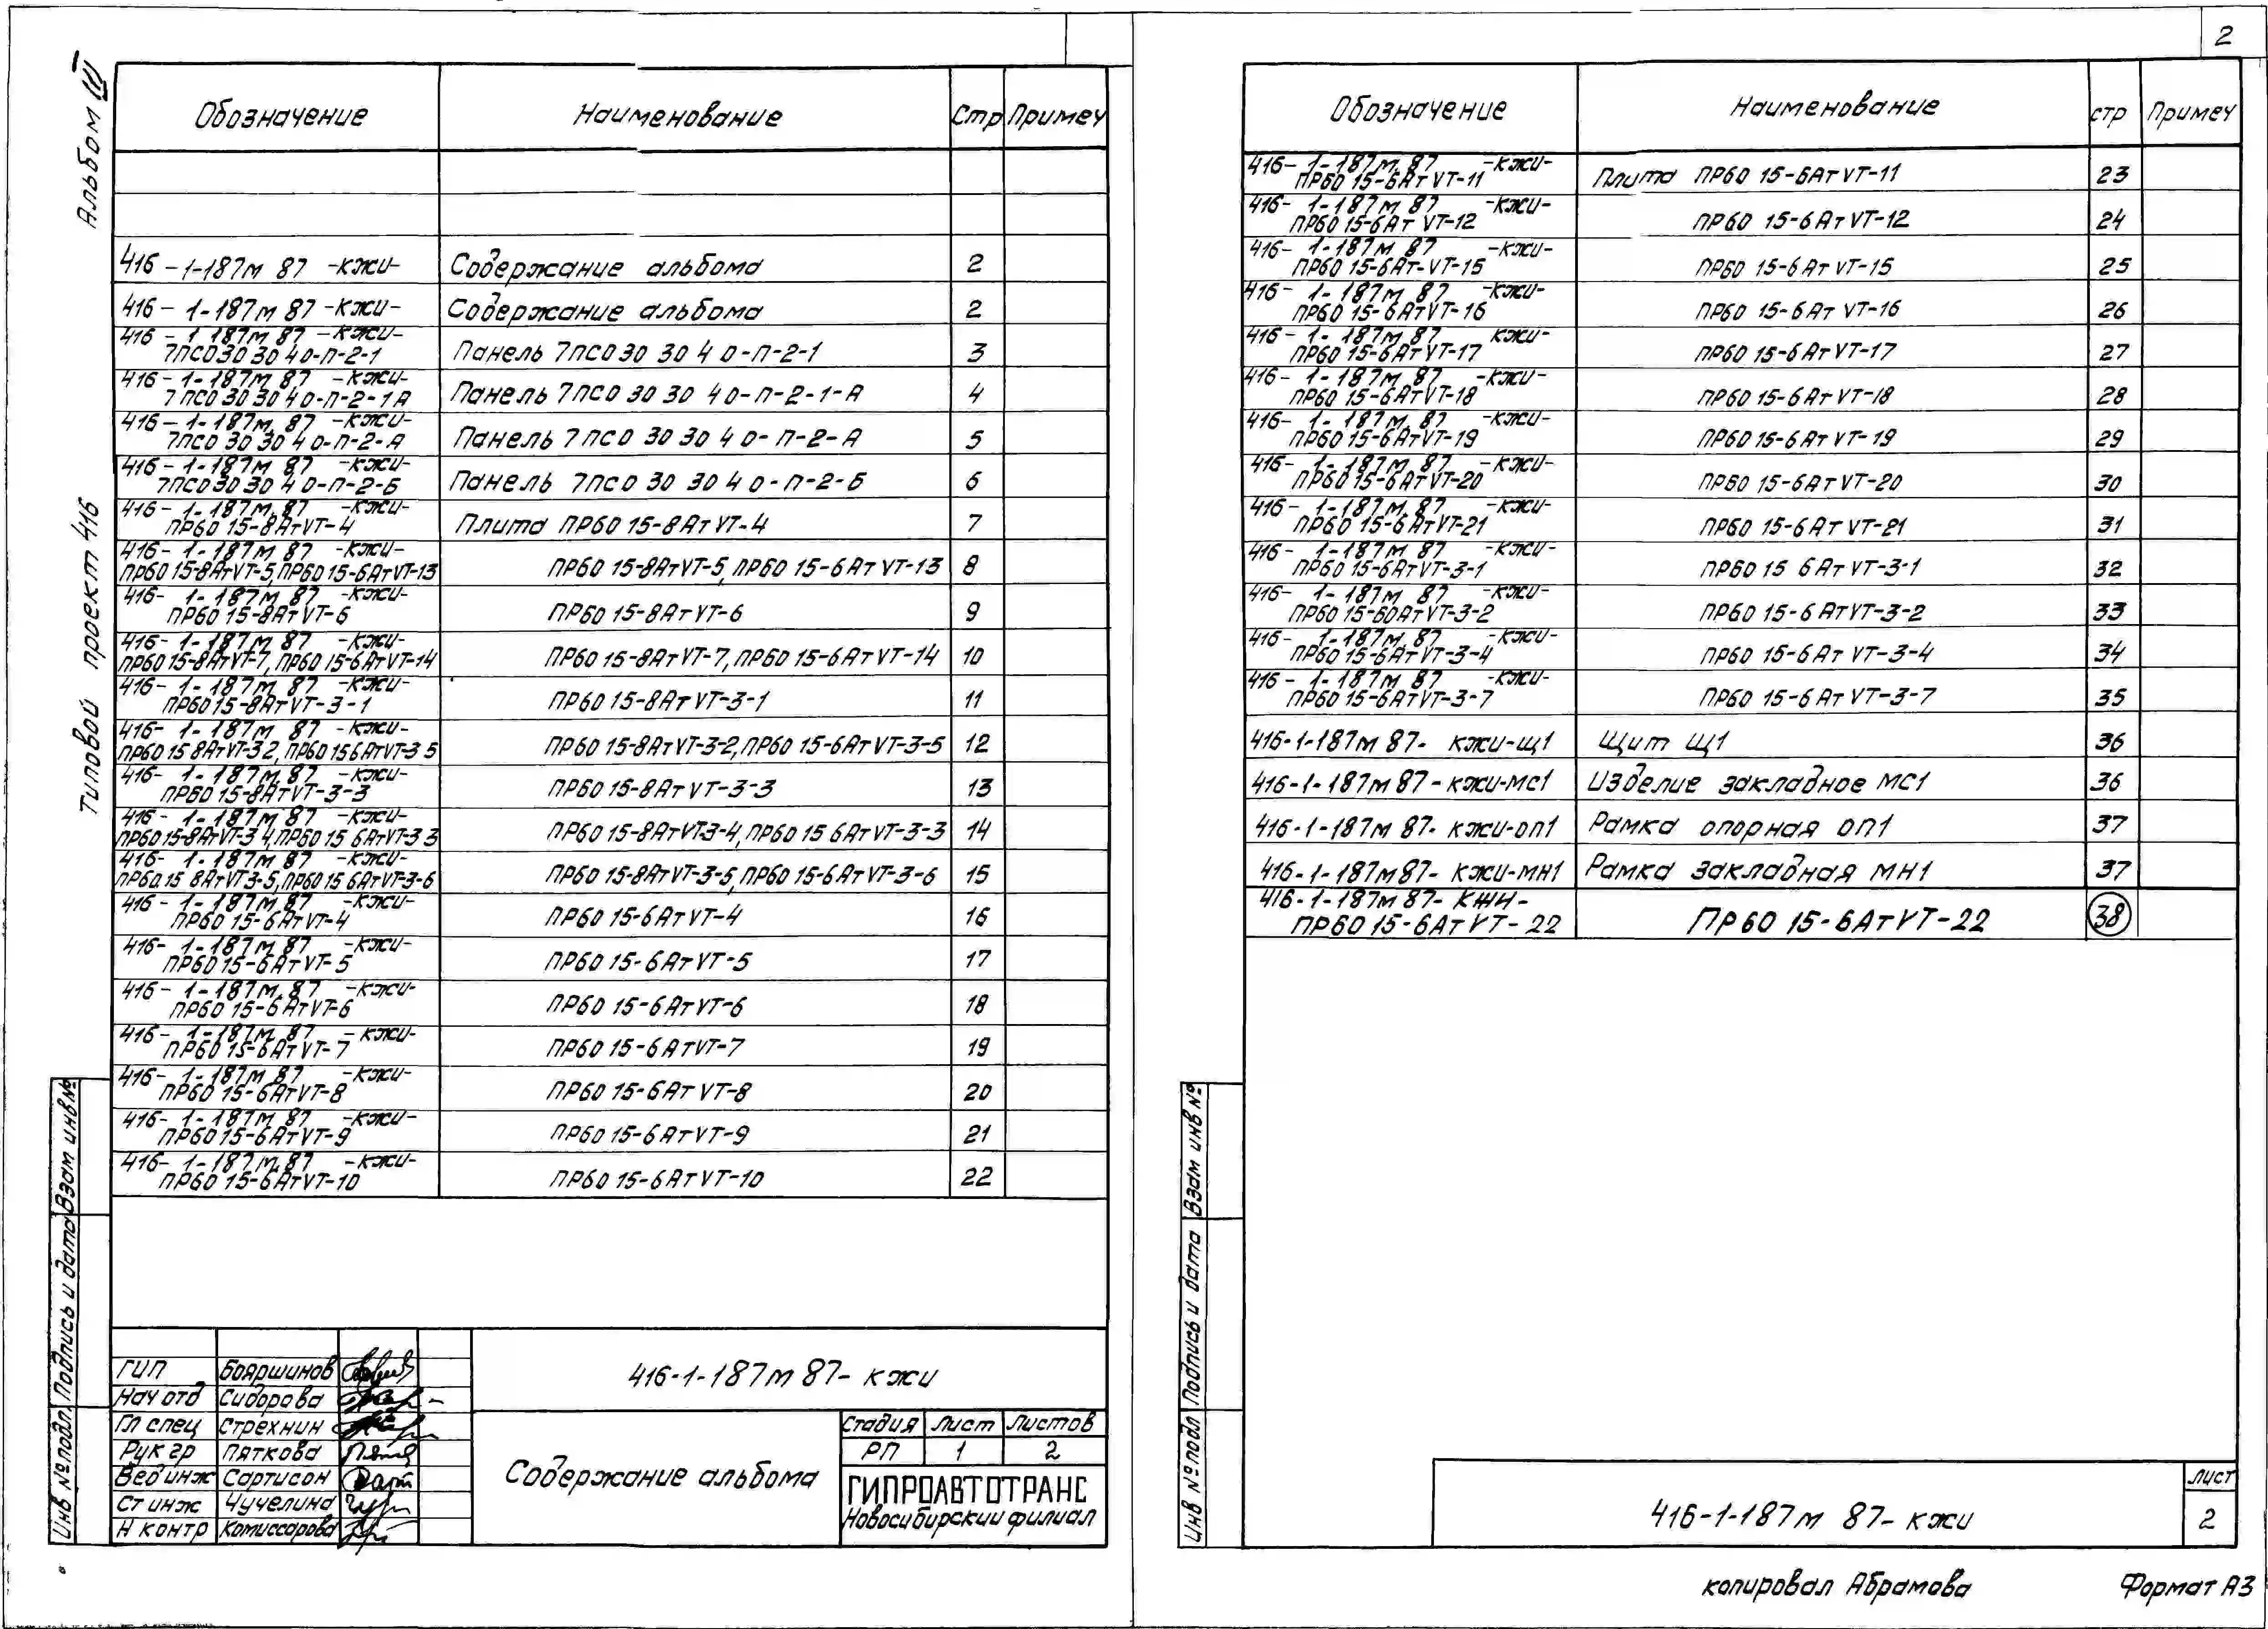 2
Альбом III
Типовой проект 416
Обозначение Наименование Стр Примеч
416-1-187м 87 -кжи- Содержание альбома 2
416-1-187м 87 -кжи- Содержание альбома 2
416-1-187м 87 -кжи-
7ПСО30 30 4 0-П-2-1 Панель 7ПСО30 30 4 0-П-2-1 3
416-1-187м 87 -кжи-
7ПСО30 30 4 0-П-2-1А Панель 7ПСО30 30 4 0-П-2-1-А 4
416-1-187м 87 -кжи-
7ПСО 30 30 4 0-П-2-А Панель 7ПСО 30 30 4 0-П-2-А 5
416-1-187м 87 -кжи-
7ПСО30 30 4 0-П-2-Б Панель 7ПСО 30 30 4 0-П-2-Б 6
416-1-187м 87 -кжи-
ПР60 15-8АтVТ-4 Плита ПР60 15-8АтVТ-4 7
416-1-187м 87 -кжи-
ПР60 15-8АтVТ-5, ПР60 15-6АтVТ-13 ПР60 15-8АтVТ-5, ПР60 15-6АтVТ-13 8
416-1-187м 87 -кжи-
ПР60 15-8АтVТ-6 ПР60 15-8АтVТ-6 9
416-1-187м 87 -кжи-
ПР60 15-8АтVТ-7, ПР60 15-6АтVТ-14 ПР60 15-8АтVТ-7, ПР60 15-6АтVТ-14 10
416-1-187м 87 -кжи-
ПР60 15-8АтVТ-3-1 ПР60 15-8АтVТ-3-1 11
416-1-187м 87 -кжи-
ПР60 15 8АтVТ-3 2, ПР60 15 6АтVТ-3 5 ПР60 15-8АтVТ-3-2, ПР60 15-6АтVТ-3-5 12
416-1-187м 87 -кжи-
ПР60 15-8АтVТ-3-3 ПР60 15-8АтVТ-3-3 13
416-1-187м 87 -кжи-
ПР60 15-8АтVТ-3 4, ПР60 15 6АтVТ-3 3 ПР60 15-8АтVТ-3-4, ПР60 15 6АтVТ-3-3 14
416-1-187м 87 -кжи-
ПР60 15 8АтVТ3-5, ПР60 15 6АтVТ-3-6 ПР60 15-8АтVТ-3-5, ПР60 15-6АтVТ-3-6 15
416-1-187м 87 -кжи-
ПР60 15-6АтVТ-4 ПР60 15-6АтVТ-4 16
416-1-187м 87 -кжи-
ПР60 15-6АтVТ-5 ПР60 15-6АтVТ-5 17
416-1-187м 87 -кжи-
ПР60 15-6АтVТ-6 ПР60 15-6АтVТ-6 18
416-1-187м 87 -кжи-
ПР60 15-6АтVТ-7 ПР60 15-6АтVТ-7 19
416-1-187м 87 -кжи-
ПР60 15-6АтVТ-8 ПР60 15-6АтVТ-8 20
416-1-187м 87 -кжи-
ПР60 15-6АтVТ-9 ПР60 15-6АтVТ-9 21
416-1-187м 87 -кжи-
ПР60 15-6АтVТ-10 ПР60 15-6АтVТ-10 22
Инв № подл. Подпись и дата Взам инв №
ГИП Бояршинов
Нач отд Сидорова
Гл спец Стрехнин
Рук гр Пяткова
Вед инж Сартисон
Ст инж Чучелина
Н контр Комиссарова
416-1-187м 87- кжи
Содержание альбома
Стадия Лист Листов
РП 1 2
ГИПРОАВТОТРАНС
Новосибирский филиал
Обозначение Наименование стр Примеч
416-1-187м 87 -кжи-
ПР60 15-6АтVТ-11 Плита ПР60 15-6АтVТ-11 23
416-1-187м 87 -кжи-
ПР60 15-6АтVТ-12 ПР60 15-6АтVТ-12 24
416-1-187м 87 -кжи-
ПР60 15-6Ат-VТ-15 ПР60 15-6АтVТ-15 25
416-1-187м 87 -кжи-
ПР60 15-6АтVТ-16 ПР60 15-6АтVТ-16 26
416-1-187м 87 кжи-
ПР60 15-6АтVТ-17 ПР60 15-6АтVТ-17 27
416-1-187м 87 -кжи-
ПР60 15-6АтVТ-18 ПР60 15-6АтVТ-18 28
416-1-187м 87 -кжи-
ПР60 15-6АтVТ-19 ПР60 15-6АтVТ-19 29
416-1-187м 87 -кжи-
ПР60 15-6АтVТ-20 ПР60 15-6АтVТ-20 30
416-1-187м 87 -кжи-
ПР60 15-6АтVТ-21 ПР60 15-6АтVТ-21 31
416-1-187м 87 -кжи-
ПР60 15-6АтVТ-3-1 ПР60 15 6АтVТ-3-1 32
416-1-187м 87 -кжи-
ПР60 15-60АтVТ-3-2 ПР60 15-6АтVТ-3-2 33
416-1-187м 87 -кжи-
ПР60 15-6АтVТ-3-4 ПР60 15-6АтVТ-3-4 34
416-1-187м 87 -кжи-
ПР60 15-6АтVТ-3-7 ПР60 15-6АтVТ-3-7 35
416-1-187м 87- кжи-щ1 Щит Щ1 36
416-1-187м 87- кжи-мс1 Изделие закладное МС1 36
416-1-187м 87- кжи-оп1 Рамка опорная ОП1 37
416-1-187м 87- кжи-мн1 Рамка закладная МН1 37
416-1-187м 87- КЖИ-
ПР60 15-6АтVТ-22 ПР60 15-6АтVТ-22 38
Инв № подл Подпись и дата Взам инв №
416-1-187м 87- кжи
лист
2
копировал Абрамова Формат А3